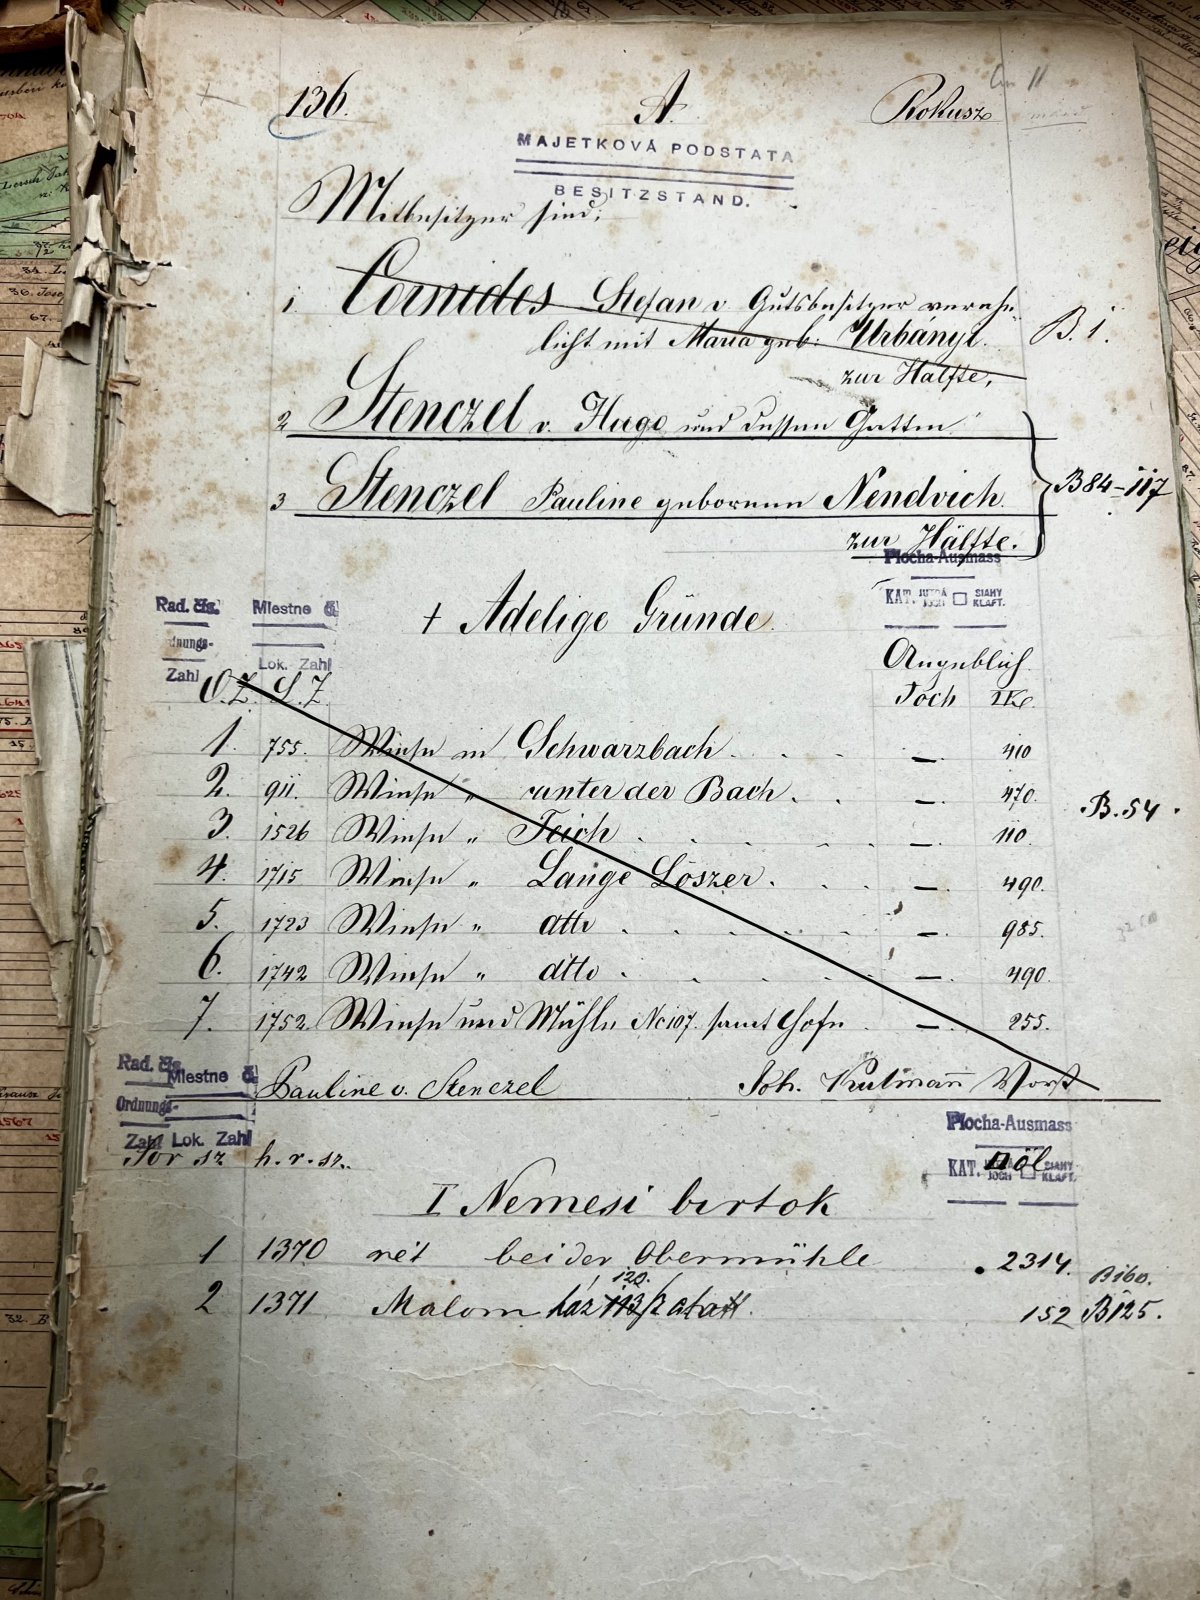 136. A. Rokusz
MAJETKOVÁ PODSTATA
BESITZSTAND.
Mitbesitzer sind;
1. Cornides Stefan v. Gutsbesitzer vereh-
licht mit Maria geb: Urbányi. B. 1.
zur Hälfte,
2 Stenczel v. Hugo und dessen Gattin
3 Stenczel Pauline geborenen Nendvich. B 84-117
zur Hälfte.
Plocha-Ausmass
KAT. JUTRÁ JOCH SIAHY KLAFT.
Rad. čís. Miestne č.
Ordnungs-
Zahl Lok. Zahl
+ Adelige Gründe.
Angeblich
O.Z. L.Z. Joch □Kl.
1. 755. Wiese in Schwarzbach . . . — 410
2. 911. Wiese " unter der Bach . . — 470.
3. 1526 Wiese " Teich . . . . — 110. B.54.
4. 1715 Wiese " Lange Löszer . . . — 490.
5. 1723 Wiese " dtto . . . . — 985.
6. 1742 Wiese " dtto . . . . — 490.
7. 1752. Wiese und Mühle No 107. samt Hofe . — 255.
Rad. čís. Miestne č.
Ordnungs-
Zahl Lok. Zahl
Pauline v. Stenczel Joh. Kulmann Worst
Plocha-Ausmass
KAT. JUTRÁ JOCH SIAHY KLAFT.
Sor sz h.r.sz. □öl
I Nemesi birtok
1 1370 rét bei der Obermühle 2314.
120. B160.
2 1371 Malom ház 113/2 alatt. 152 B125.